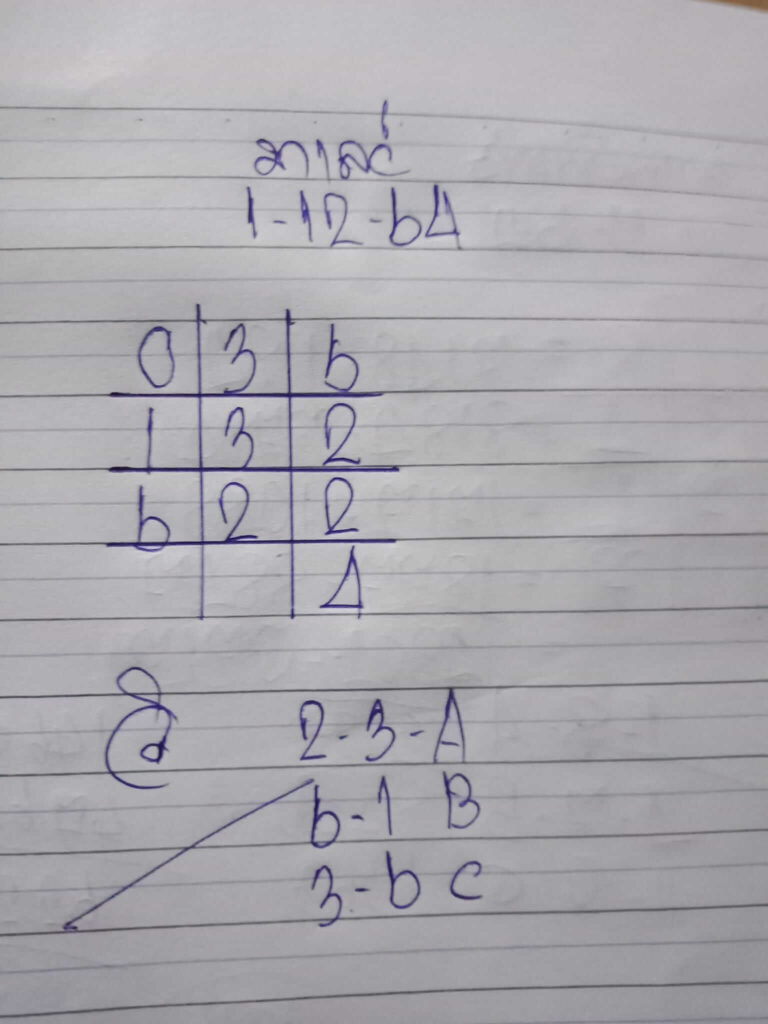 1-12-64
0 3 6
1 3 2
6 2 2
4
2-3-A
6-1 B
3-6 C